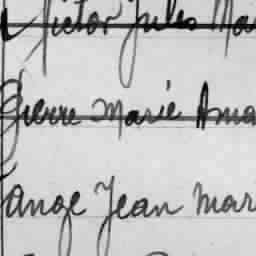 Victor Jules Ma
Pierre Marie Ama
Ange Jean Mar